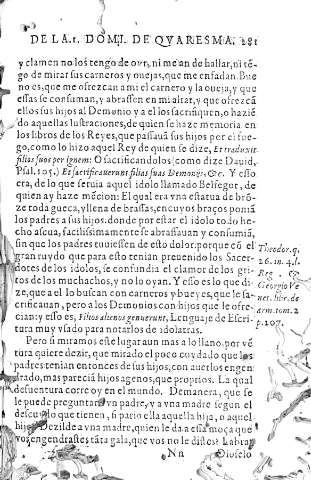 DE LA.1. DOMI. DE QVARESMA. 281
y clamen no los tengo de oyr, ni me an de hallar, ni tē-
go de mirar sus carneros y ouejas, que me enfadan. Bue
no es, que me ofrezcan a mi el carnero y la oueja, y que
essas se consuman, y abrassen en mi altar, y que ofrezcā
ellos sus hijos al Demonio y a el los sacrifiquen, o hazié
do aquellas lustraciones, de quien se haze memoria en
los libros de los Reyes, que passauā sus hijos por el fue-
go, como lo hizo aquel Rey de quien se dize, Et traduxit
filios suos per ignem: O sacrificandolos (como dize Dauid,
Psal. 105.) Et sacrificauerunt filias suas Demonijs, &c. Y esso
era, de lo que seruia aquel idolo llamado Belfegor, de
quien ay haze mēcion: El qual era vna estatua de brō-
ze toda gueca, y llena de brassas, en cuyos braços poniā
los padres a sus hijos. donde por estar el idolo todo he-
cho ascua, facilissimamente se abrassauan y consumiā,
sin que los padres tuuiessen de esto dolor: porque cō el
gran ruydo que para esto tenian preuenido los Sacer-
dotes de los idolos, se confundia el clamor de los gri-
tos de los muchachos, y no lo oyan. Y esso es lo que di-
ze, que a el lo buscan con carneros y bueyes, que le sa-
crificauan, pero a los Demonios con hijos que le ofre-
cian: y esso es, Filios alienos genuerunt, Lenguaje de Escri-
tura muy vsado para notarlos de idolatras.
Theodor. q.
26. in 4. l.
Reg. &
Georgio Ve
net. libr. de
arm. tom. 2
p. 207.
Pero si miramos este lugar aun mas a lo llano. por vē-
tura quiere dezir, que mirado el poco cuydado que los
padres tenian entonces de sus hijos, con auerlos engen-
drado, mas pareciā hijos agenos, que proprios. La qual
desuentura corre oy en el mundo. Demanera, que se
le puede preguntar a vn padre, y a vna madre segun el
descuydo que tienen, si pario ella aquella hija, o aquel
hijo. Dezilde a vna madre, quien le da a essa moça que
vos engendrastes tāta gala, que vos no le distes? Labrar
Nn